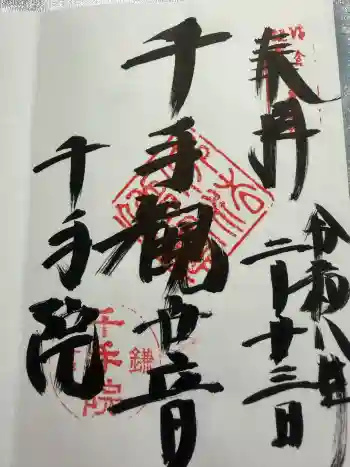 奉拝
令和八年
二月廿三日
千手観世音
千手院
鎌
千手院